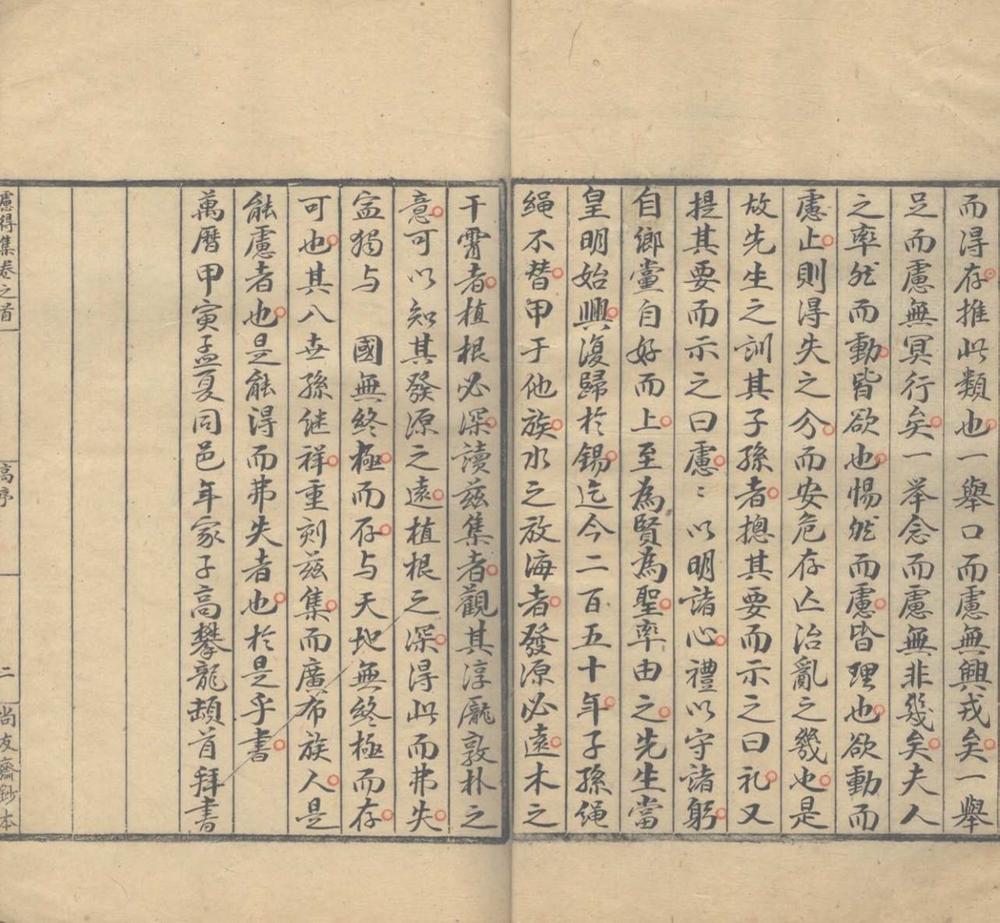 而得存推此類也一舉口而慮無興戎矣一舉
足而慮無冥行矣一举念而慮無非幾矣夫人
之率然而動皆欲也惕然而慮皆理也欲動而
慮止則得失之分而安危存亾治亂之幾也是
故先生之訓其子孫者揔其要而示之曰礼又
提其要而示之曰慮〻以明諸心禮以守諸躬
自鄉黨自好而上至為賢為聖率由之先生當
皇明始興復歸於錫迄今二百五十年子孫繩
繩不替甲于他族水之放海者發源必遠木之
干霄者植根必深讀兹集者觀其淳龐敦朴之
意可以知其發源之遠植根之深得此而弗失
盖獨与　國無終極而存与天地無終極而存
可也其八世孫继祥重刻兹集而廣布族人是
能慮者也是能得而弗失者也於是乎書
萬曆甲寅孟夏同邑年家子高攀龍頓首拜書
慮得集卷之首
高序
二
尚友齋鈔本